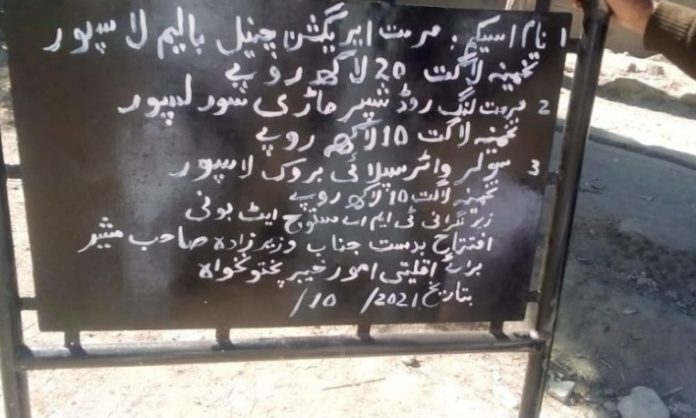 1 نام اسکیم: مرمت ایریگیشن چینل بالیم لاسپور
تخمینہ لاگت 20 لاکھ روپے
2 مرمت لنک روڈ شہیر ماڑی شور لسپور
تخمینہ لاگت 10 لاکھ روپے
3 سولر واٹر سپلائی بروک لاسپور
تخمینہ لاگت 10 لاکھ روپے
زیر نگرانی ٹی ایم اے مستوج ایٹ بونی
افتتاح بدست جناب وزیر زادہ صاحب مشیر
برائے اقلیتی امور خیبر پختونخواہ
بتاریخ 2021/ 10 /